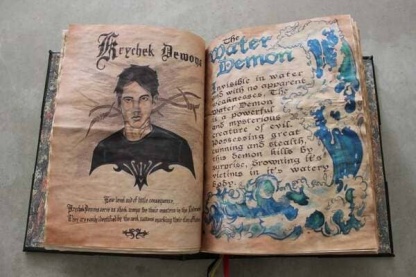 Krychek Demons
Low level and of little consequence,
Krychek Demons serve as
The
Water
Demon
Invisible in water
and with no apparent
weaknesses. The
Water Demon
is a powerful
and mysterious
creature of evil.
Possessing great
cunning and stealth,
this demon kills by
surprise, drowning it's
victims in it's watery
body.